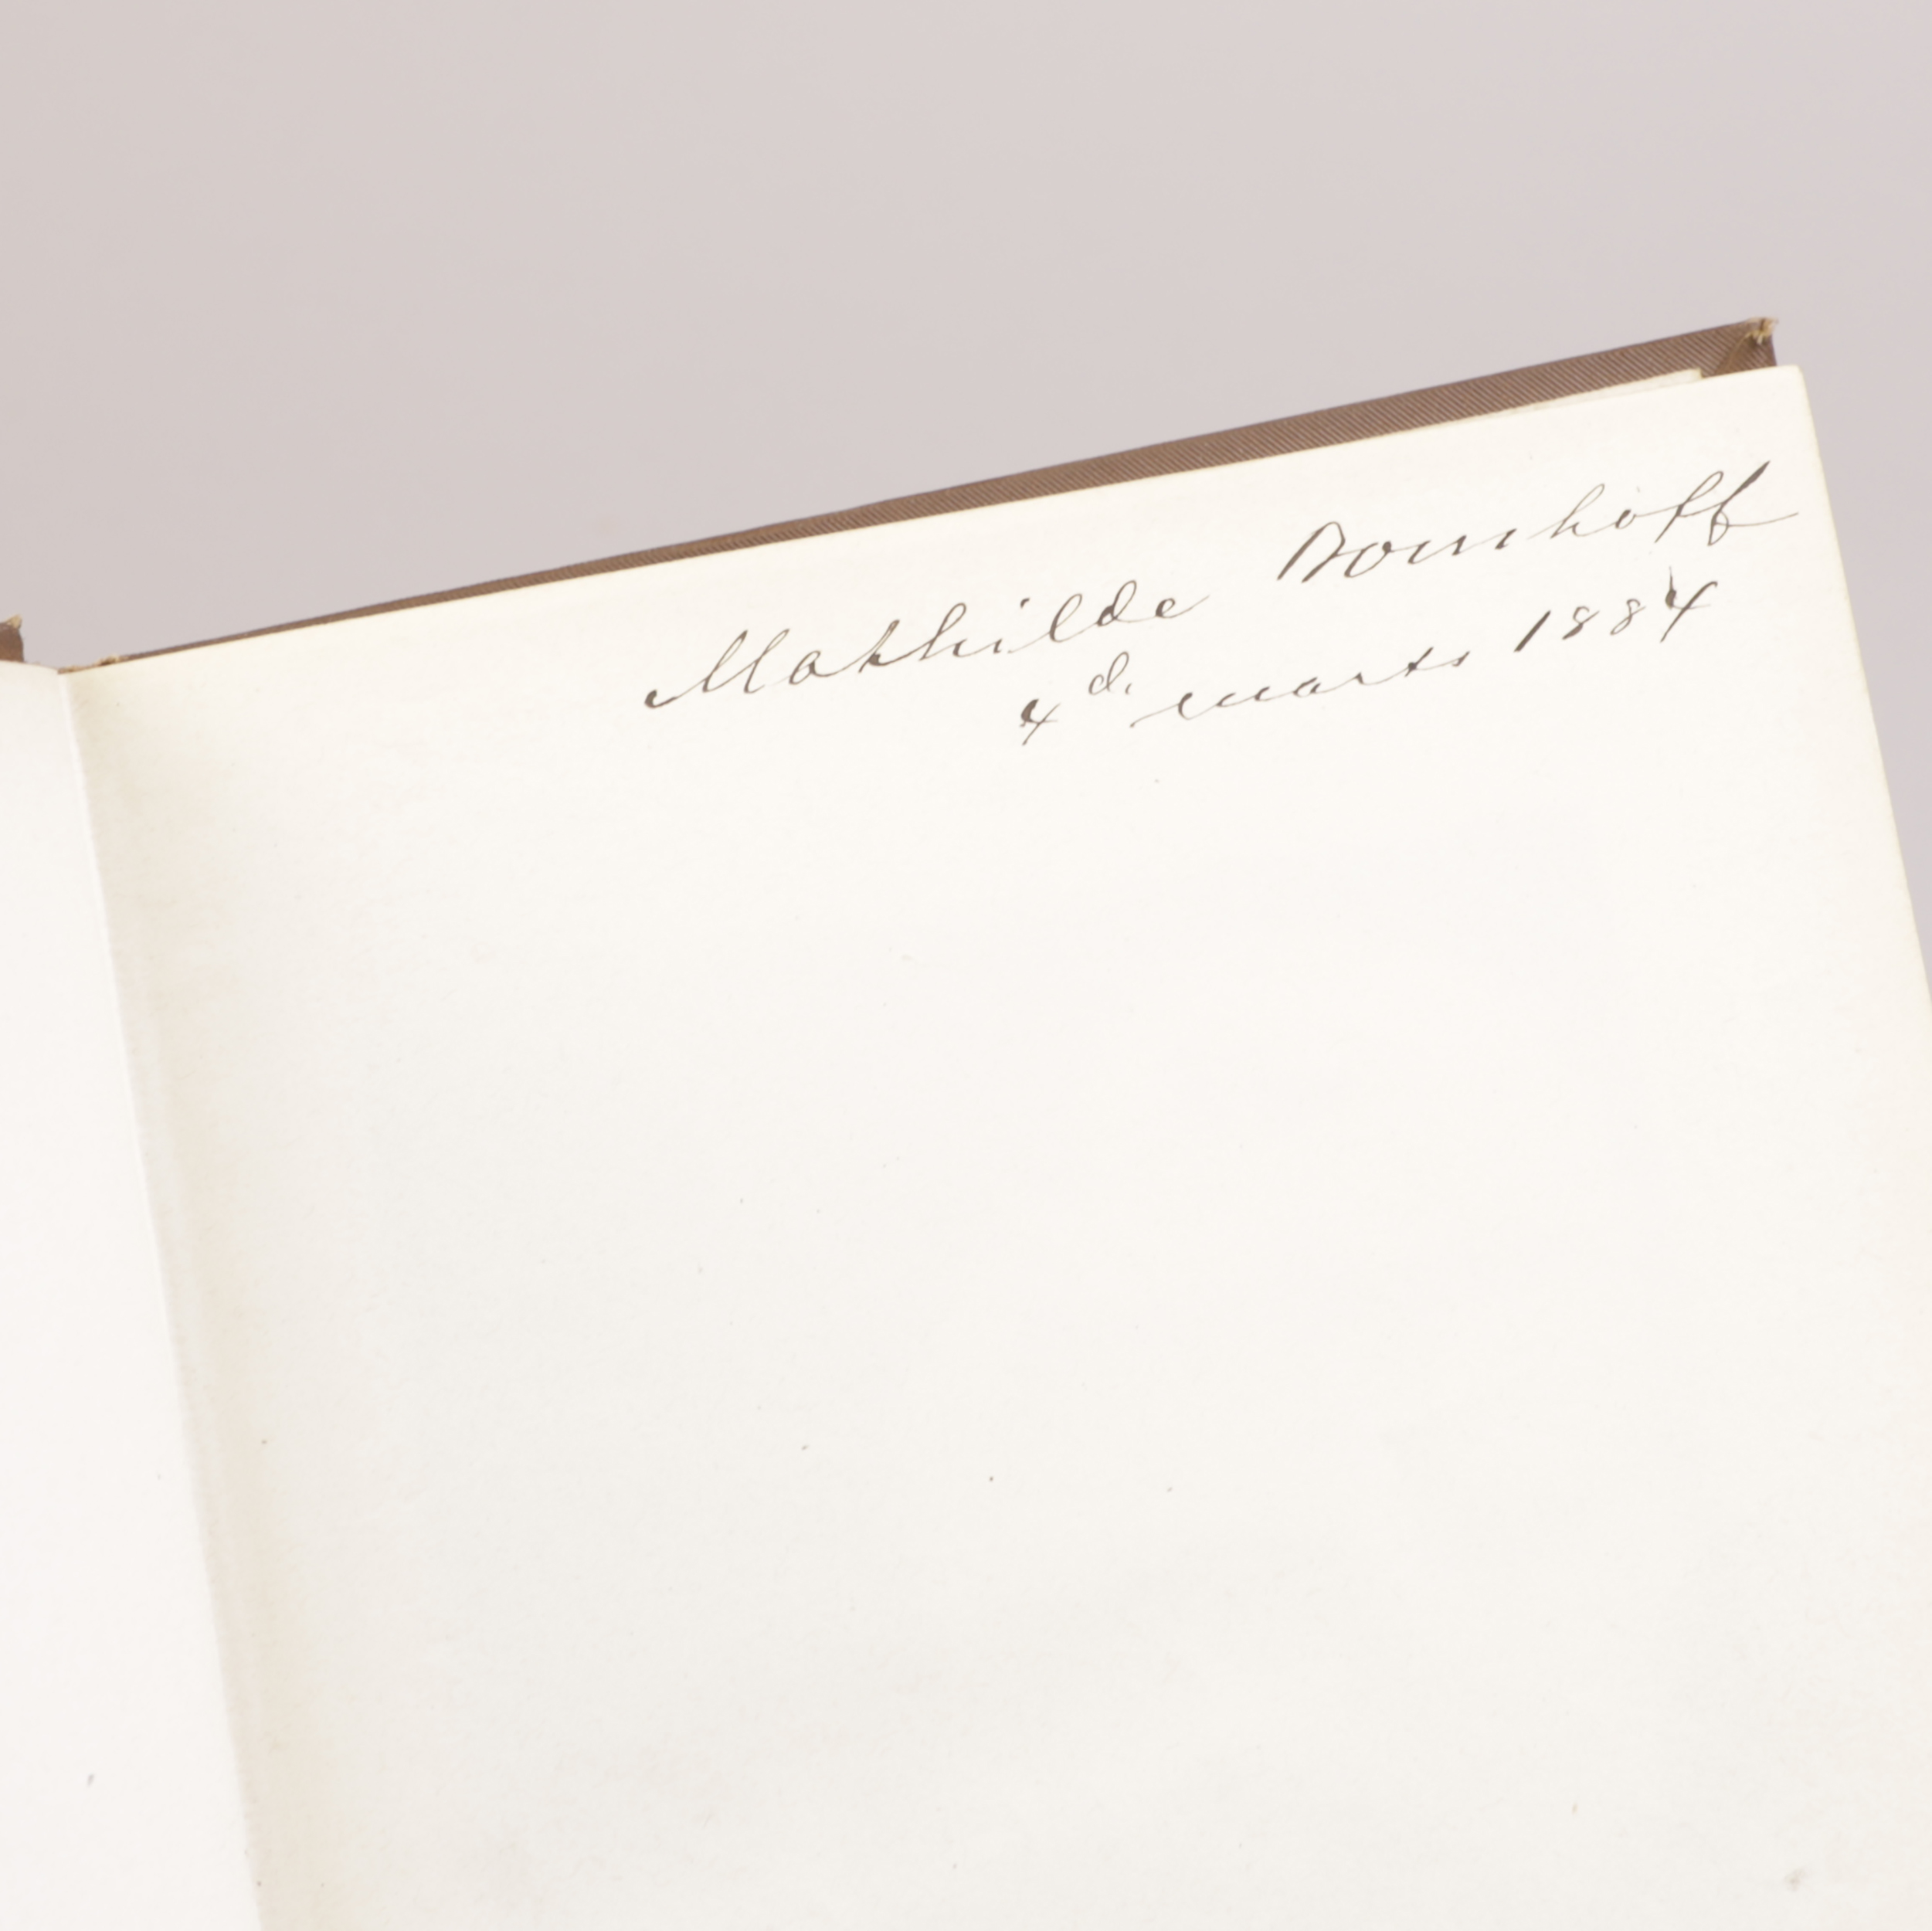 Mathilde Bornhöft
4 d. marts 1884